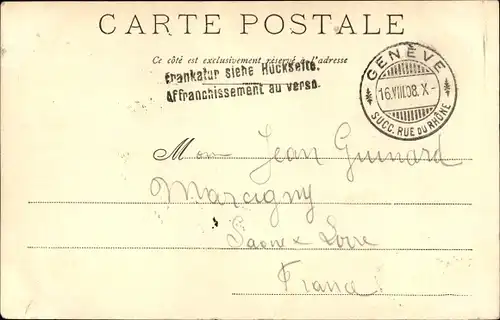 CARTE POSTALE
Ce côté est exclusivement réservé à l'adresse
Frankatur siehe Rückseite.
Affranchissement au verso.
GENÈVE
16.VIII.08.X-
SUCC. RUE DU RHÔNE
Mon Jean Guinard
Marcigny
Saone & Loire
France